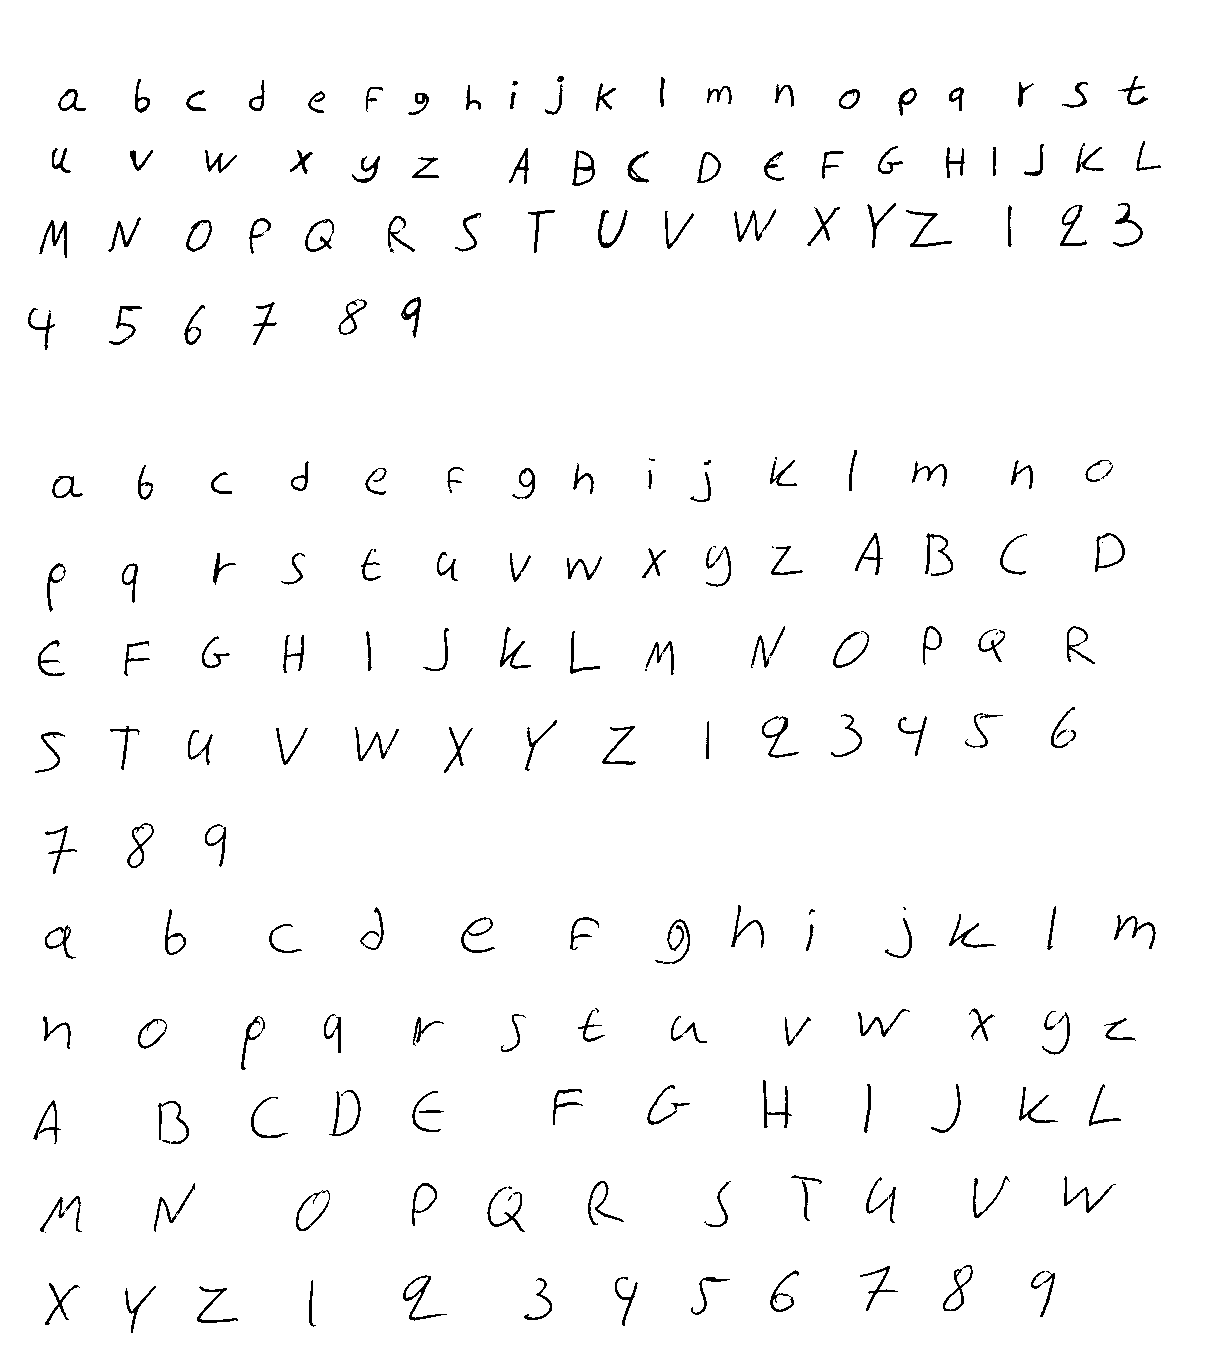 a b c d e f g h i j k l m n o p q r s t
u v w x y z A B C D E F G H I J K L
M N O P Q R S T U V W X Y Z 1 2 3
4 5 6 7 8 9
a b c d e f g h i j k l m n o
p q r s t u v w x y z A B C D
E F G H I J K L M N O P Q R
S T U V W X Y Z 1 2 3 4 5 6
7 8 9
a b c d e f g h i j k l m
n o p q r s t u v w x y z
A B C D E F G H I J K L
M N O P Q R S T U V W
X Y Z 1 2 3 4 5 6 7 8 9